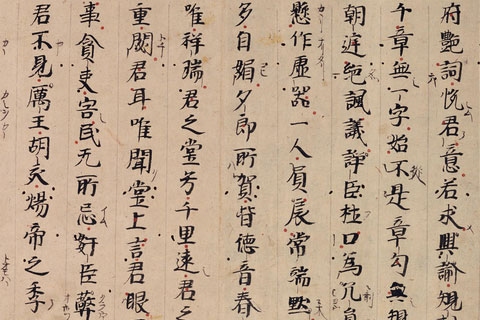 府艶詞悅君意若求興諭規
千章無一字始不是章勾無規
朝廷絕諷議諍臣杜口為冗員
懸作虛器一人負扆常端默
多自媚夕郎所賀皆德音春
唯祥瑞君之堂兮千里遠君之
重閟君耳唯聞堂上言君眼
事貪吏害民无所忌奸臣蔽
君不見厲王胡亥煬帝之季